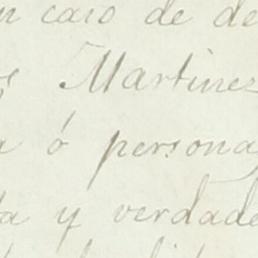 n caso de de
s Martinez
a ó persona
ta y verdade